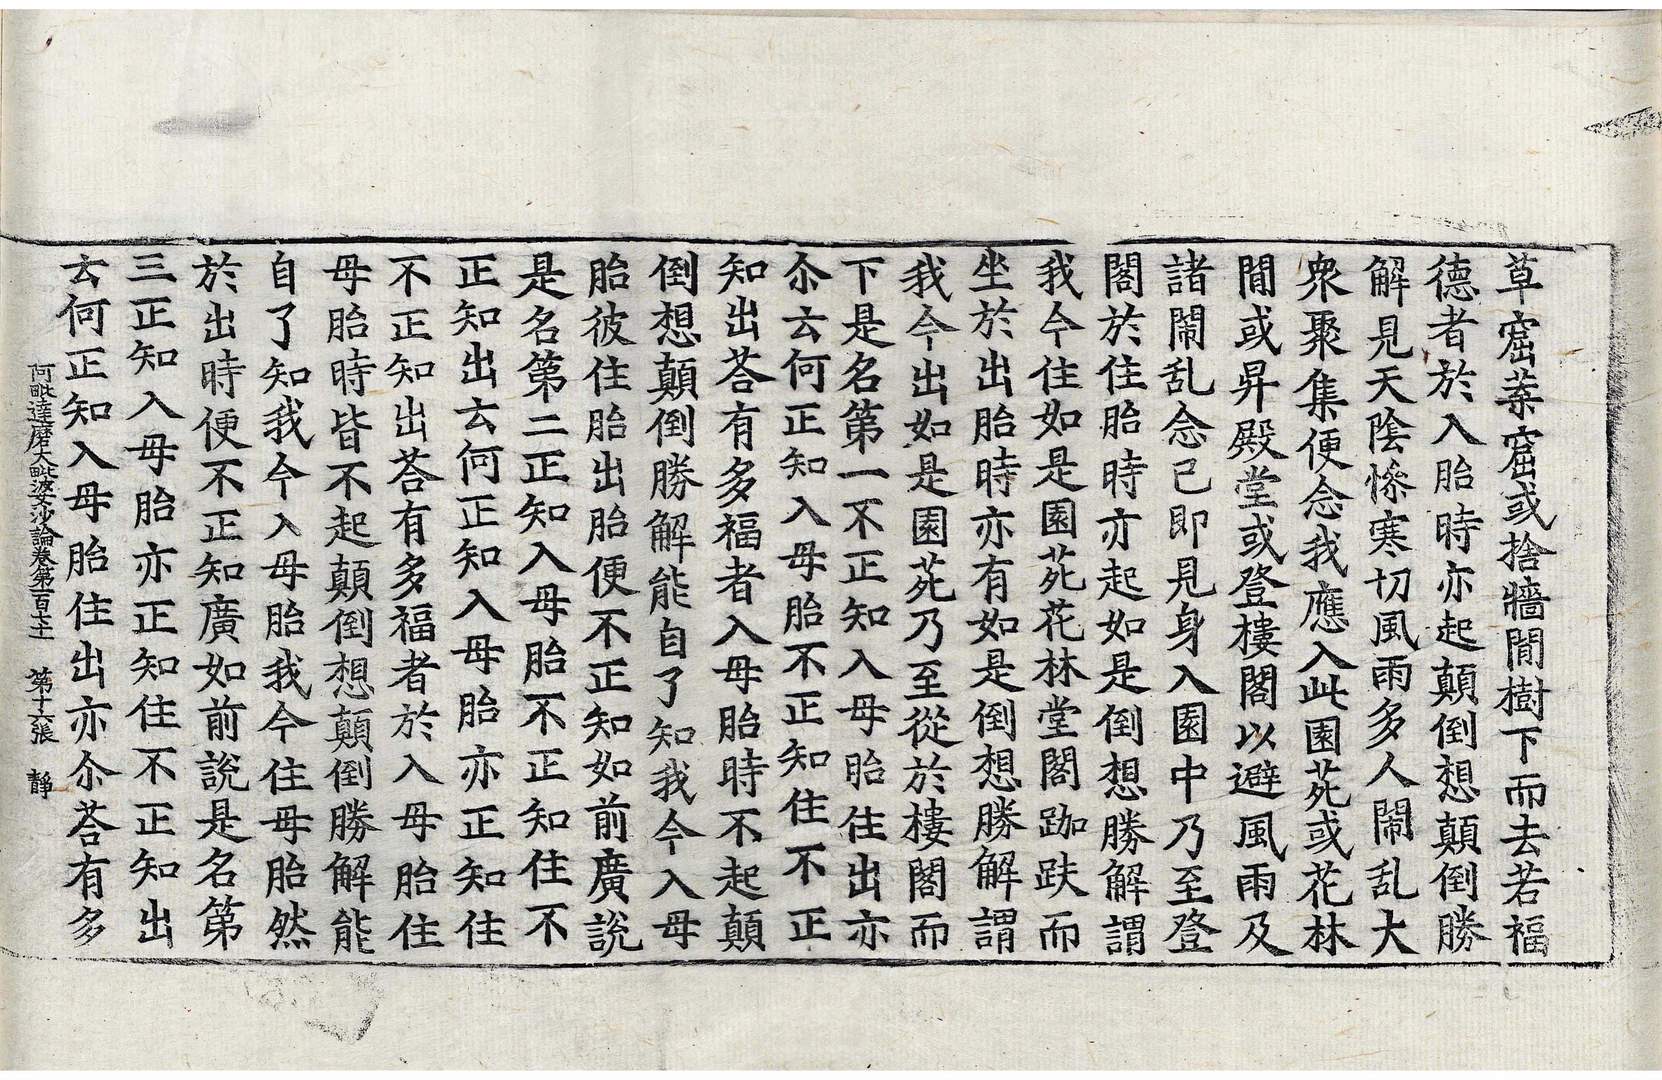 草窟葉窟或捨牆閒樹下而去若福
德者於入胎時亦起顛倒想顛倒勝
解見天陰慘寒切風雨多人鬧乱大
衆聚集便念我應入此園苑或花林
閒或昇殿堂或登樓閣以避風雨及
諸鬧乱念已即見身入園中乃至登
閣於住胎時亦起如是倒想勝解謂
我今住如是園苑花林堂閣跏趺而
坐於出胎時亦有如是倒想勝解謂
我今出如是園苑乃至從於樓閣而
下是名第一不正知入母胎住出亦
尒云何正知入母胎不正知住不正
知出荅有多福者入母胎時不起顛
倒想顛倒勝解能自了知我今入母
胎彼住胎出胎便不正知如前廣說
是名第二正知入母胎不正知住不
正知出云何正知入母胎亦正知住
不正知出荅有多福者於入母胎住
母胎時皆不起顛倒想顛倒勝解能
自了知我今入母胎我今住母胎然
於出時便不正知廣如前說是名第
三正知入母胎亦正知住不正知出
云何正知入母胎住出亦尒荅有多
阿毗達磨大毗婆沙論卷第一百七十一 第十六張 靜